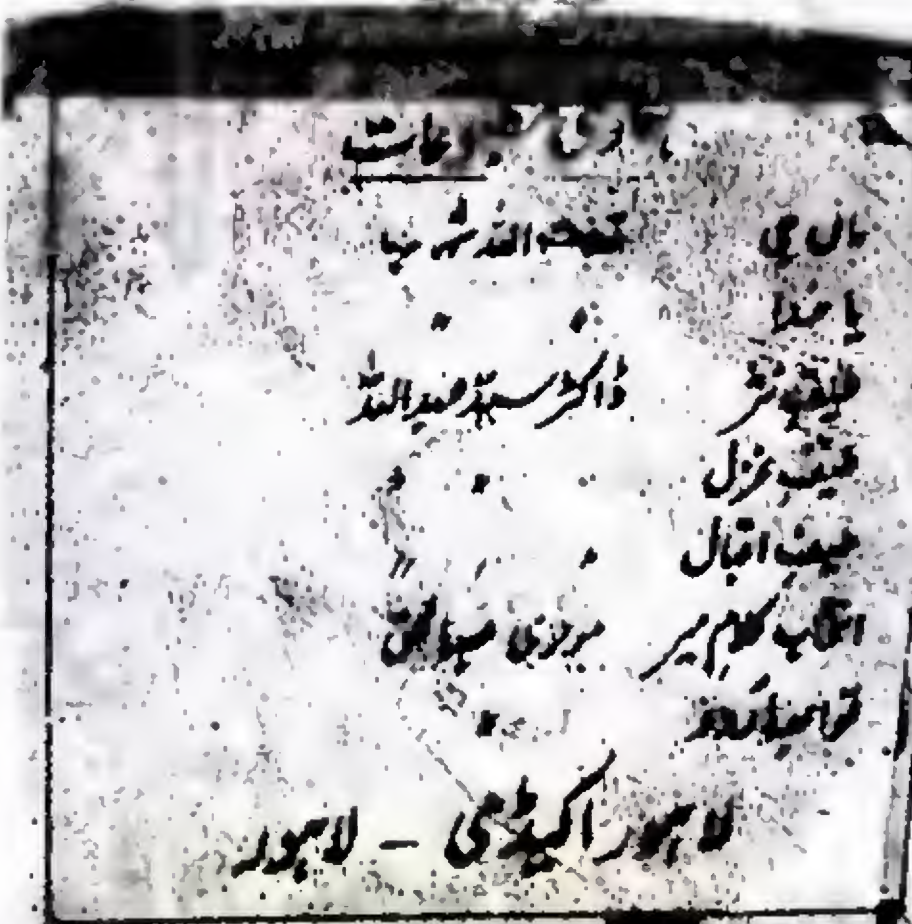 ماں جی قدرت اللہ شہاب
یا خدا " "
طیف نثر ڈاکٹر سید عبداللہ
طیف غزل " "
طیف اقبال " " "
انتخاب کلام میر مولوی عبدالحق
قواعد اردو "
لاہور اکیڈمی - لاہور